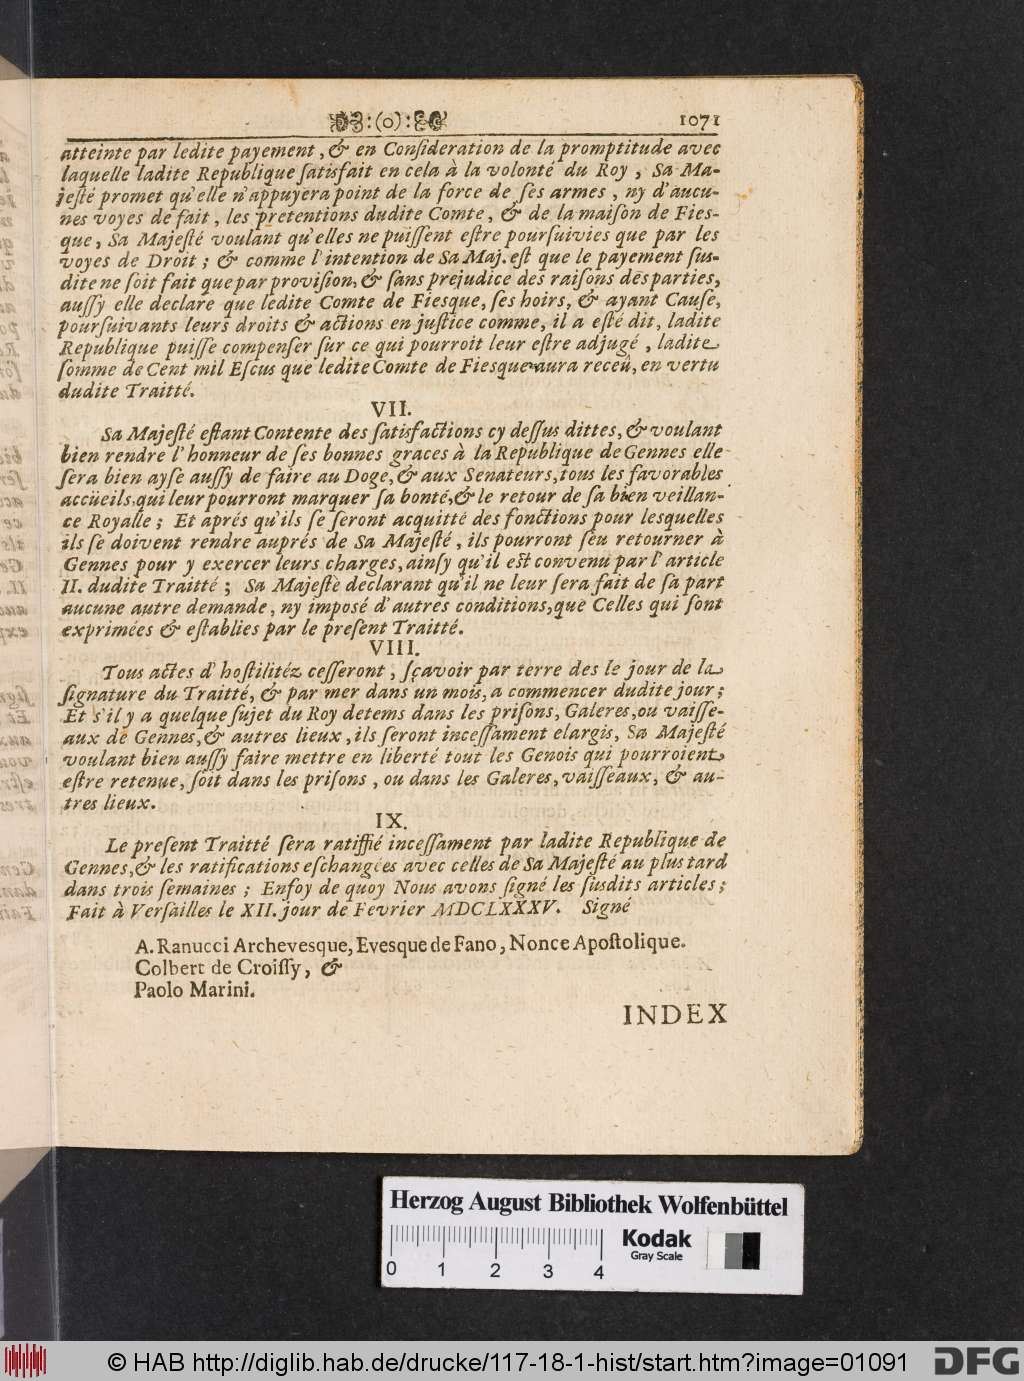 :(o): 1071
atteinte par ledite payement, & en Conſideration de la promptitude avec
laquelle ladite Republique ſatisfait en cela à la volonté du Roy, Sa Ma-
jeſté promet qu'elle n'appuyera point de la force de ſes armes, ny d'aucu-
nes voyes de fait, les pretentions dudite Comte, & de la maiſon de Fies-
que, Sa Majeſté voulant qu'elles ne puiſſent eſtre pourſuivies que par les
voyes de Droit; & comme l'intention de Sa Maj. eſt que le payement ſus-
dite ne ſoit fait que par proviſion, & ſans prejudice des raiſons des parties,
auſſy elle declare que ledite Comte de Fieſque, ſes hoirs, & ayant Cauſe,
pourſuivants leurs droits & actions en juſtice comme, il a eſté dit, ladite
Republique puiſſe compenſer ſur ce qui pourroit leur eſtre adjugé, ladite
ſomme de Cent mil Eſcus que ledite Comte de Fieſque aura receu, en vertu
dudite Traitté.
VII.
Sa Majeſté eſtant Contente des ſatisfactions cy deſſus dittes, & voulant
bien rendre l'honneur de ſes bonnes graces à la Republique de Gennes elle
ſera bien ayſe auſſy de faire au Doge, & aux Senateurs, tous les favorables
accüeils, qui leur pourront marquer ſa bonté, & le retour de ſa bien veillan-
ce Royalle; Et aprés qu'ils ſe ſeront acquitté des fonctions pour lesquelles
ils ſe doivent rendre auprés de Sa Majeſté, ils pourront ſeu retourner à
Gennes pour y exercer leurs charges, ainſy qu'il est convenu par l'article
II. dudite Traitté; Sa Majeſtè declarant qu'il ne leur ſera fait de ſa part
aucune autre demande, ny imposé d'autres conditions, que Celles qui ſont
exprimées & eſtablies par le preſent Traitté.
VIII.
Tous actes d'hoſtilitéz ceſſeront, ſçavoir par terre des le jour de la
ſignature du Traitté, & par mer dans un mois, a commencer dudite jour;
Et s'il y a quelque ſujet du Roy detems dans les priſons, Galeres, ou vaiſſe-
aux de Gennes, & autres lieux, ils ſeront inceſſament elargis, Sa Majeſté
voulant bien auſſy faire mettre en liberté tout les Genois qui pourroient
eſtre retenue, ſoit dans les priſons, ou dans les Galeres, vaiſſeaux, & au-
tres lieux.
IX.
Le preſent Traitté ſera ratiffié inceſſament par ladite Republique de
Gennes, & les ratifications eſchangées avec celles de Sa Majeſté au plus tard
dans trois ſemaines; Enfoy de quoy Nous avons ſigné les ſusdits articles;
Fait à Verſailles le XII. jour de Fevrier MDCLXXXV. Signé
A. Ranucci Archevesque, Evesque de Fano, Nonce Apoſtolique.
Colbert de Croiſſy, &
Paolo Marini.
INDEX
Herzog August Bibliothek Wolfenbüttel
Kodak
Gray Scale
0 1 2 3 4
© HAB http://diglib.hab.de/drucke/117-18-1-hist/start.htm?image=01091 DFG